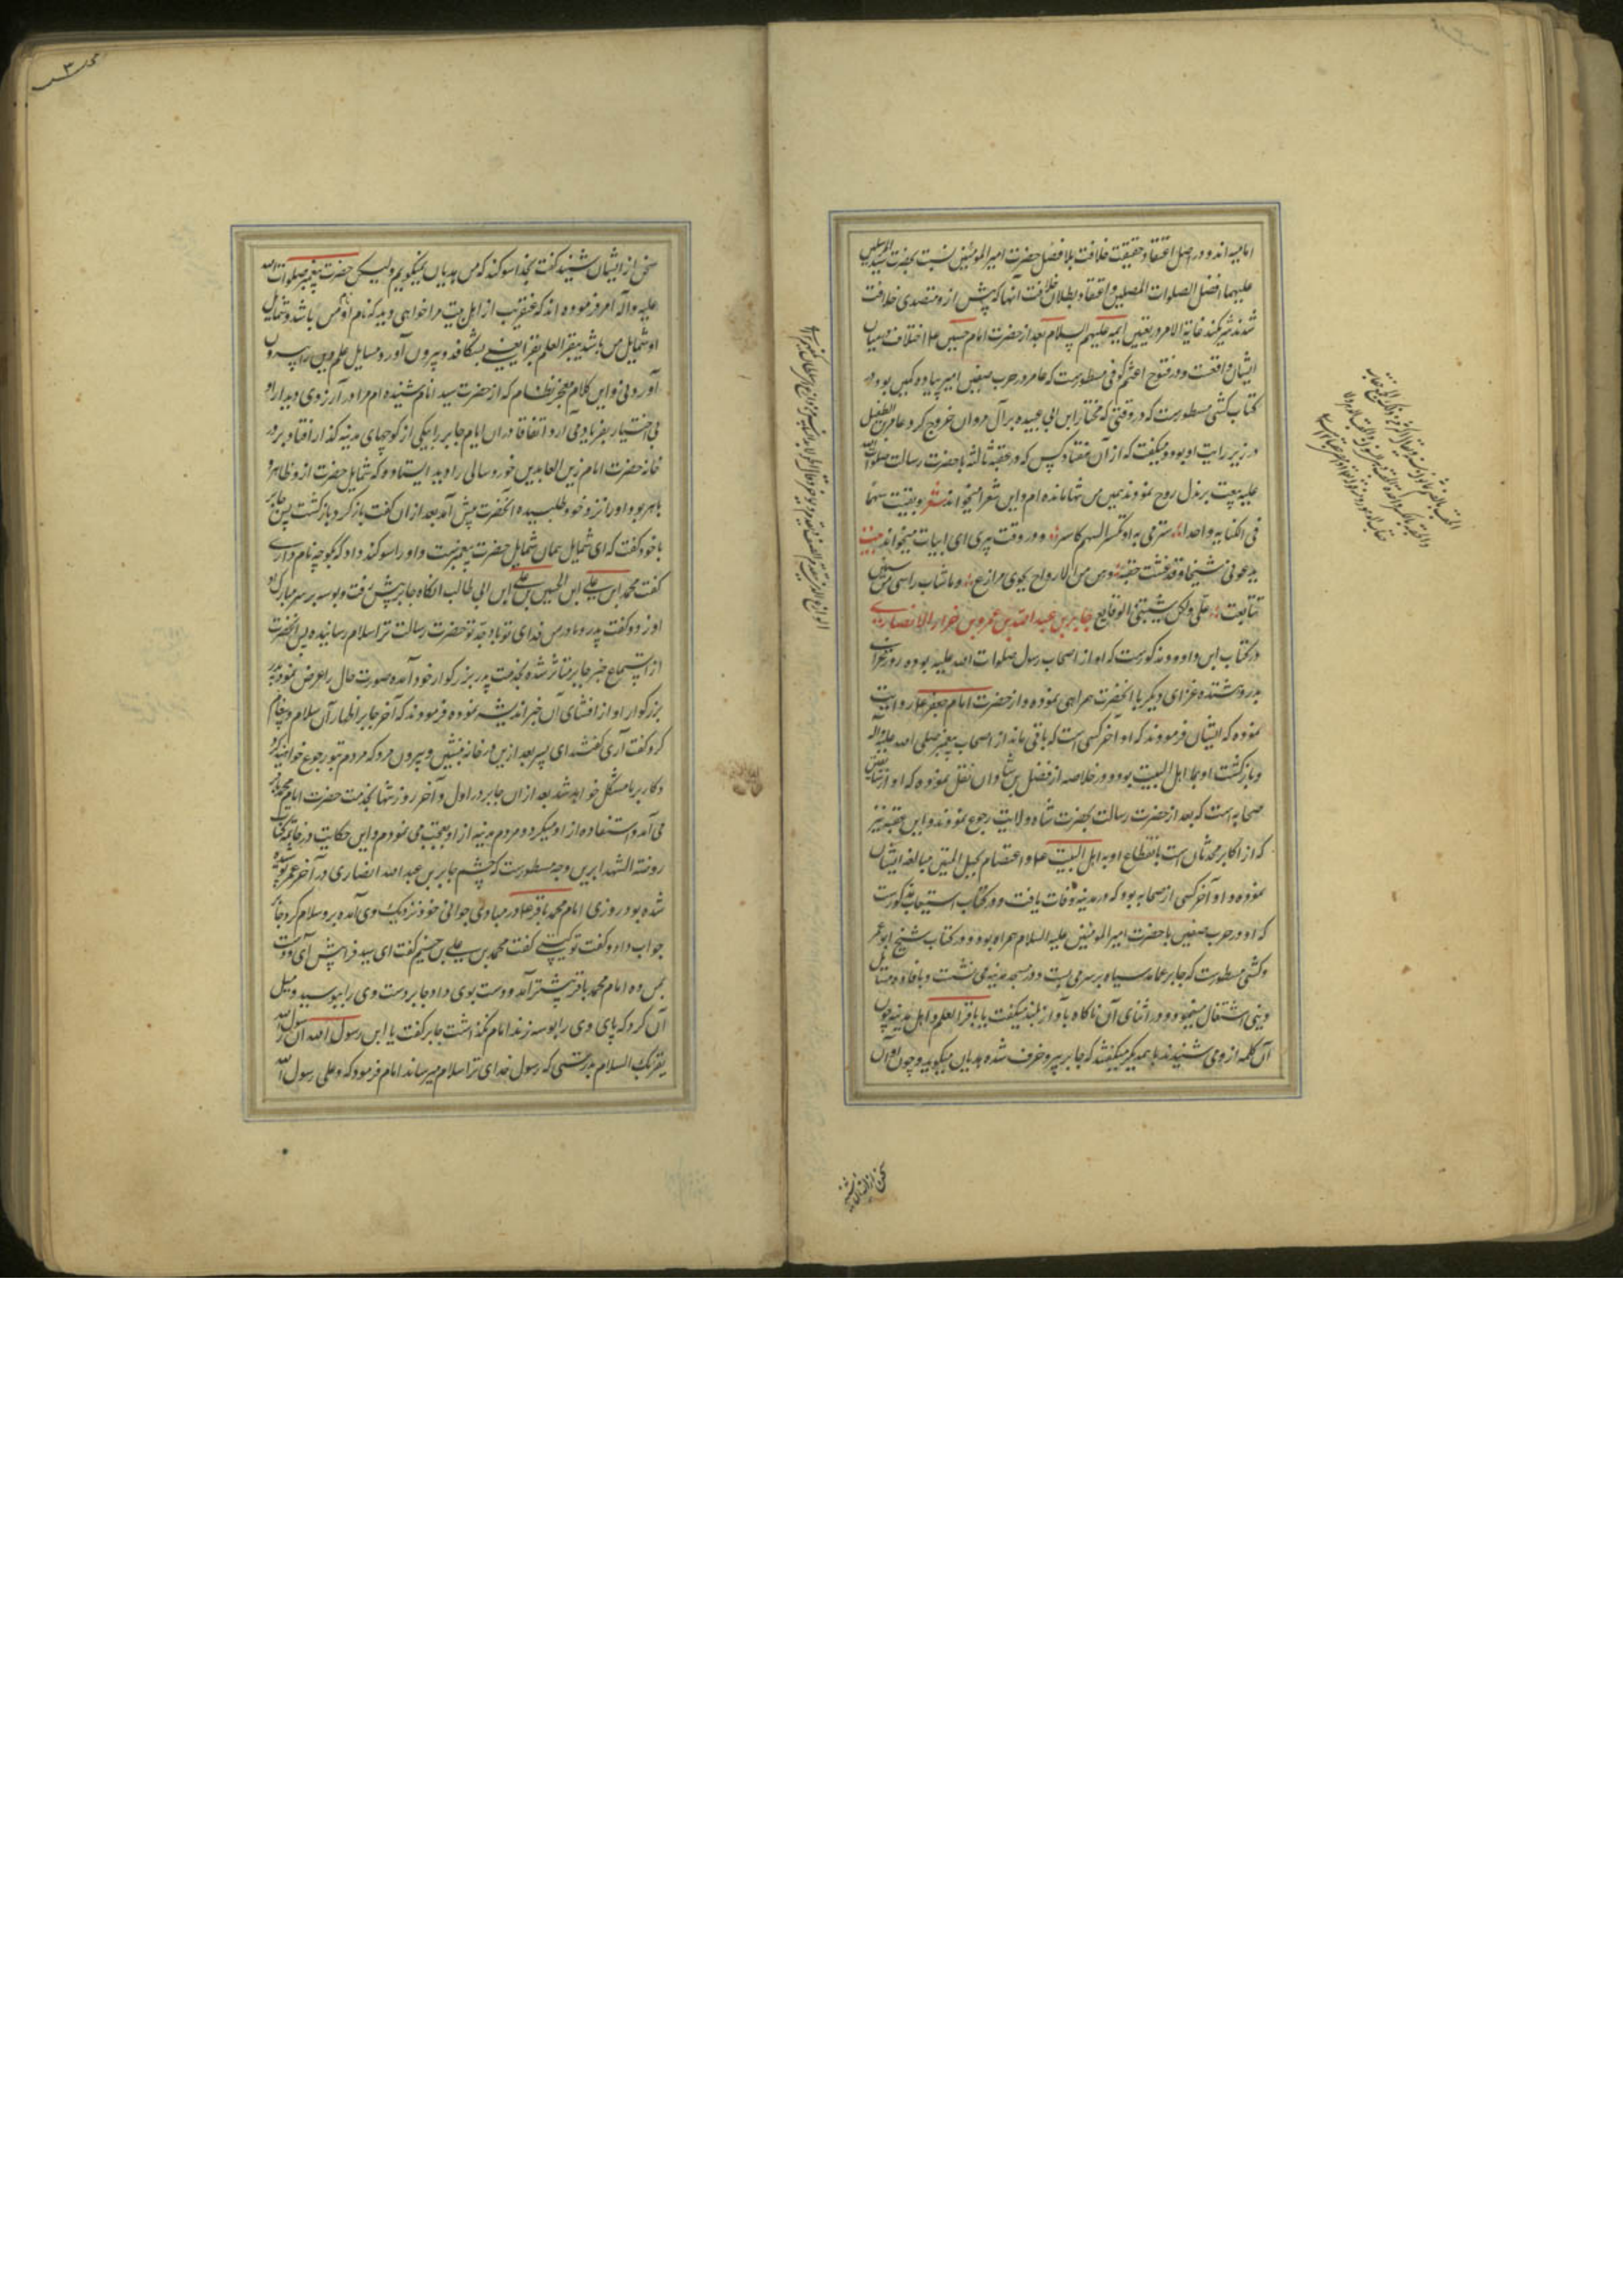 امامیه اند و در اصل اعتقاد حقیقت خلافت بلافصل حضرت امیر المومنین نسبت بحضرت سید المرسلین
علیهما افضل الصلوات المصلین و اعتقاد بطلان خلافت آنها که پیش از و متصدی خلافت
شدند شریکند غایة الامر در تعیین ایمه علیهم السلام بعد از حضرت امام حسین ع اختلاف در میان
ایشان واقعست و در فتوح اعثم کوفی مسطورست که عامر در حرب صفین امیر پیاده کمین بود و در
کتاب کشی مسطورست که در وقتی که مختار ابن ابی عبیده بر آل مروان خروج کرد عامر بن الطفیل
در زیر رایت او بود و میکفت که از آن هفتاد کس که در عقبه ثالثه با حضرت رسالت صلوات الله
علیه بیعت بر بذل روح نمودند همین من تنها مانده ام و این شعر میخواند شعر و بقیت سهما
فی الکنانه واحدا سترمی به او تکسر السهم کاسر و در وقت پیری ای ابیات میخواند بیت
یدعونی شیخا و قد عشت حقبه وهن من الازواج نحوی نوازع و ما شاب راسی من سنین
تتابعت علی ولکن شیبتنی الوقایع جابر بن عبد الله بن عمرو بن حزار الانصاری
در کتاب ابن داود مذکورست که او از اصحاب رسول صلوات الله علیه بوده روز غزای
بدر و هشتده غزای دیکر با انحضرت همراهی نموده و از حضرت امام جعفر ع روایت
نموده که ایشان فرمودند که او آخر کسی است که باقی ماند از اصحاب پیغمبر صلی الله علیه و آله
و بازکشت او بما اهل البیت بود و در خلاصه از فضل بن شاذان نقل نموده که او از سابقین
صحابه است که بعد از حضرت رسالت بحضرت شاه ولایت رجوع نمودند و ابن عقده نیز
که از اکابر محدثان است بانقطاع او به اهل البیت ع و اعتصام بحبل المتین مبالغه ایشان
نموده و او آخر کسی از صحابه بود که در مدینه وفات یافت و در کتاب استیعاب مذکورست
که او در حرب صفین با حضرت امیر المومنین علیه السلام همراه بود و در کتاب شیخ ابو عمر
و کشی مسطورست که جابر عمامه سیاه بر سر می بست و در مسجد مدینه می نشست و بافاده مسایل
دینی اشتغال مینمود و در اثنای آن ناکاه بآواز بلند میکفت یا باقر العلم و اهل مدینه چون
آن کلمه از و می شنیدند با همدیکر میکفتند که جابر پیر و خرف شده هذیان میکوید و چون او آن
سخن از ایشان شنید
سخن از ایشان شنید کفت بخدا سوکند که من هذیان نمیکویم ولیکن حضرت پیغمبر صلوات الله
علیه و آله امر فرموده اند که عنقریب از اهل بیت مرا خواهی دید که نام او نام من باشد و شمایل
او شمایل من باشد یبقر العلم بقرا یعنی بشکافد و بیرون آورد مسایل علم دین را بیرون
آوردنی و این کلام معجز نظام که از حضرت سید انام شنیده ام مرا در آرزوی دیدار او
بی اختیار بفریاد می آرد اتفاقا در ان ایام جابر را بیکی از کوچهای مدینه کذار افتاد بر در
خانه حضرت امام زین العابدین خورد سالی را دید ایستاده که شمایل حضرت از و ظاهر و
باهر بود او را نزد خود طلبیده انحضرت پیش آمد بعد از ان کفت بازکرد بازکشت پس جابر
با خود کفت که ای شمایل همان شمایل حضرت پیغمبرست و او را سوکند داد که بکو چه نام داری
کفت محمد ابن علی ابن الحسین بن علی ابن ابی طالب انکاه جابر پیش رفت و بوسه بر سر مبارک او
او زد و کفت پدر و مادر من فدای تو باد جد تو حضرت رسالت ترا سلام رسانیده پس انحضرت
از استماع خبر جابر متاثر شده بخدمت پدر بزرکوار خود آمده صورت حال را عرض نموده پدر
بزرکوار او از افشای آن خبر اندیشه نموده فرمودند که آخر جابر اظهار آن سلام و پیغام
کرد کفت آری کفتند ای پسر بعد ازین در خانه بنشین و بیرون مرو که مردم بتو رجوع خواهند کرد
و کار بر ما مشکل خواهد شد بعد از ان جابر در اول و آخر روزها بخدمت حضرت امام محمد باقر
می آمد و استفاده از او میکرد و مردم مدینه از او تعجب می نمودم و این حکایت در خاتمه کتاب
روضة الشهدا برین وجه مسطورست که چشم جابر بن عبد الله انصاری در آخر عمر پوشیده
شده بود روزی امام محمد باقر ع در مبادی جوانی خود نزدیک وی آمده بر و سلام کرد جابر
جواب داد و کفت تو کیستی کفت محمد بن علی بن حسینم کفت ای سید فرا پیش آی و دست
بمن ده امام محمد باقر پیشتر آمد و دست بوی داد جابر دست وی را ببوسید و میل
آن کرد که پای وی را بوسه زند امام نکذاشت جابر کفت یا ابن رسول الله ان رسول الله
یقرئک السلام بدرستی که رسول خدای ترا سلام میرساند امام فرمود که و علی رسول الله